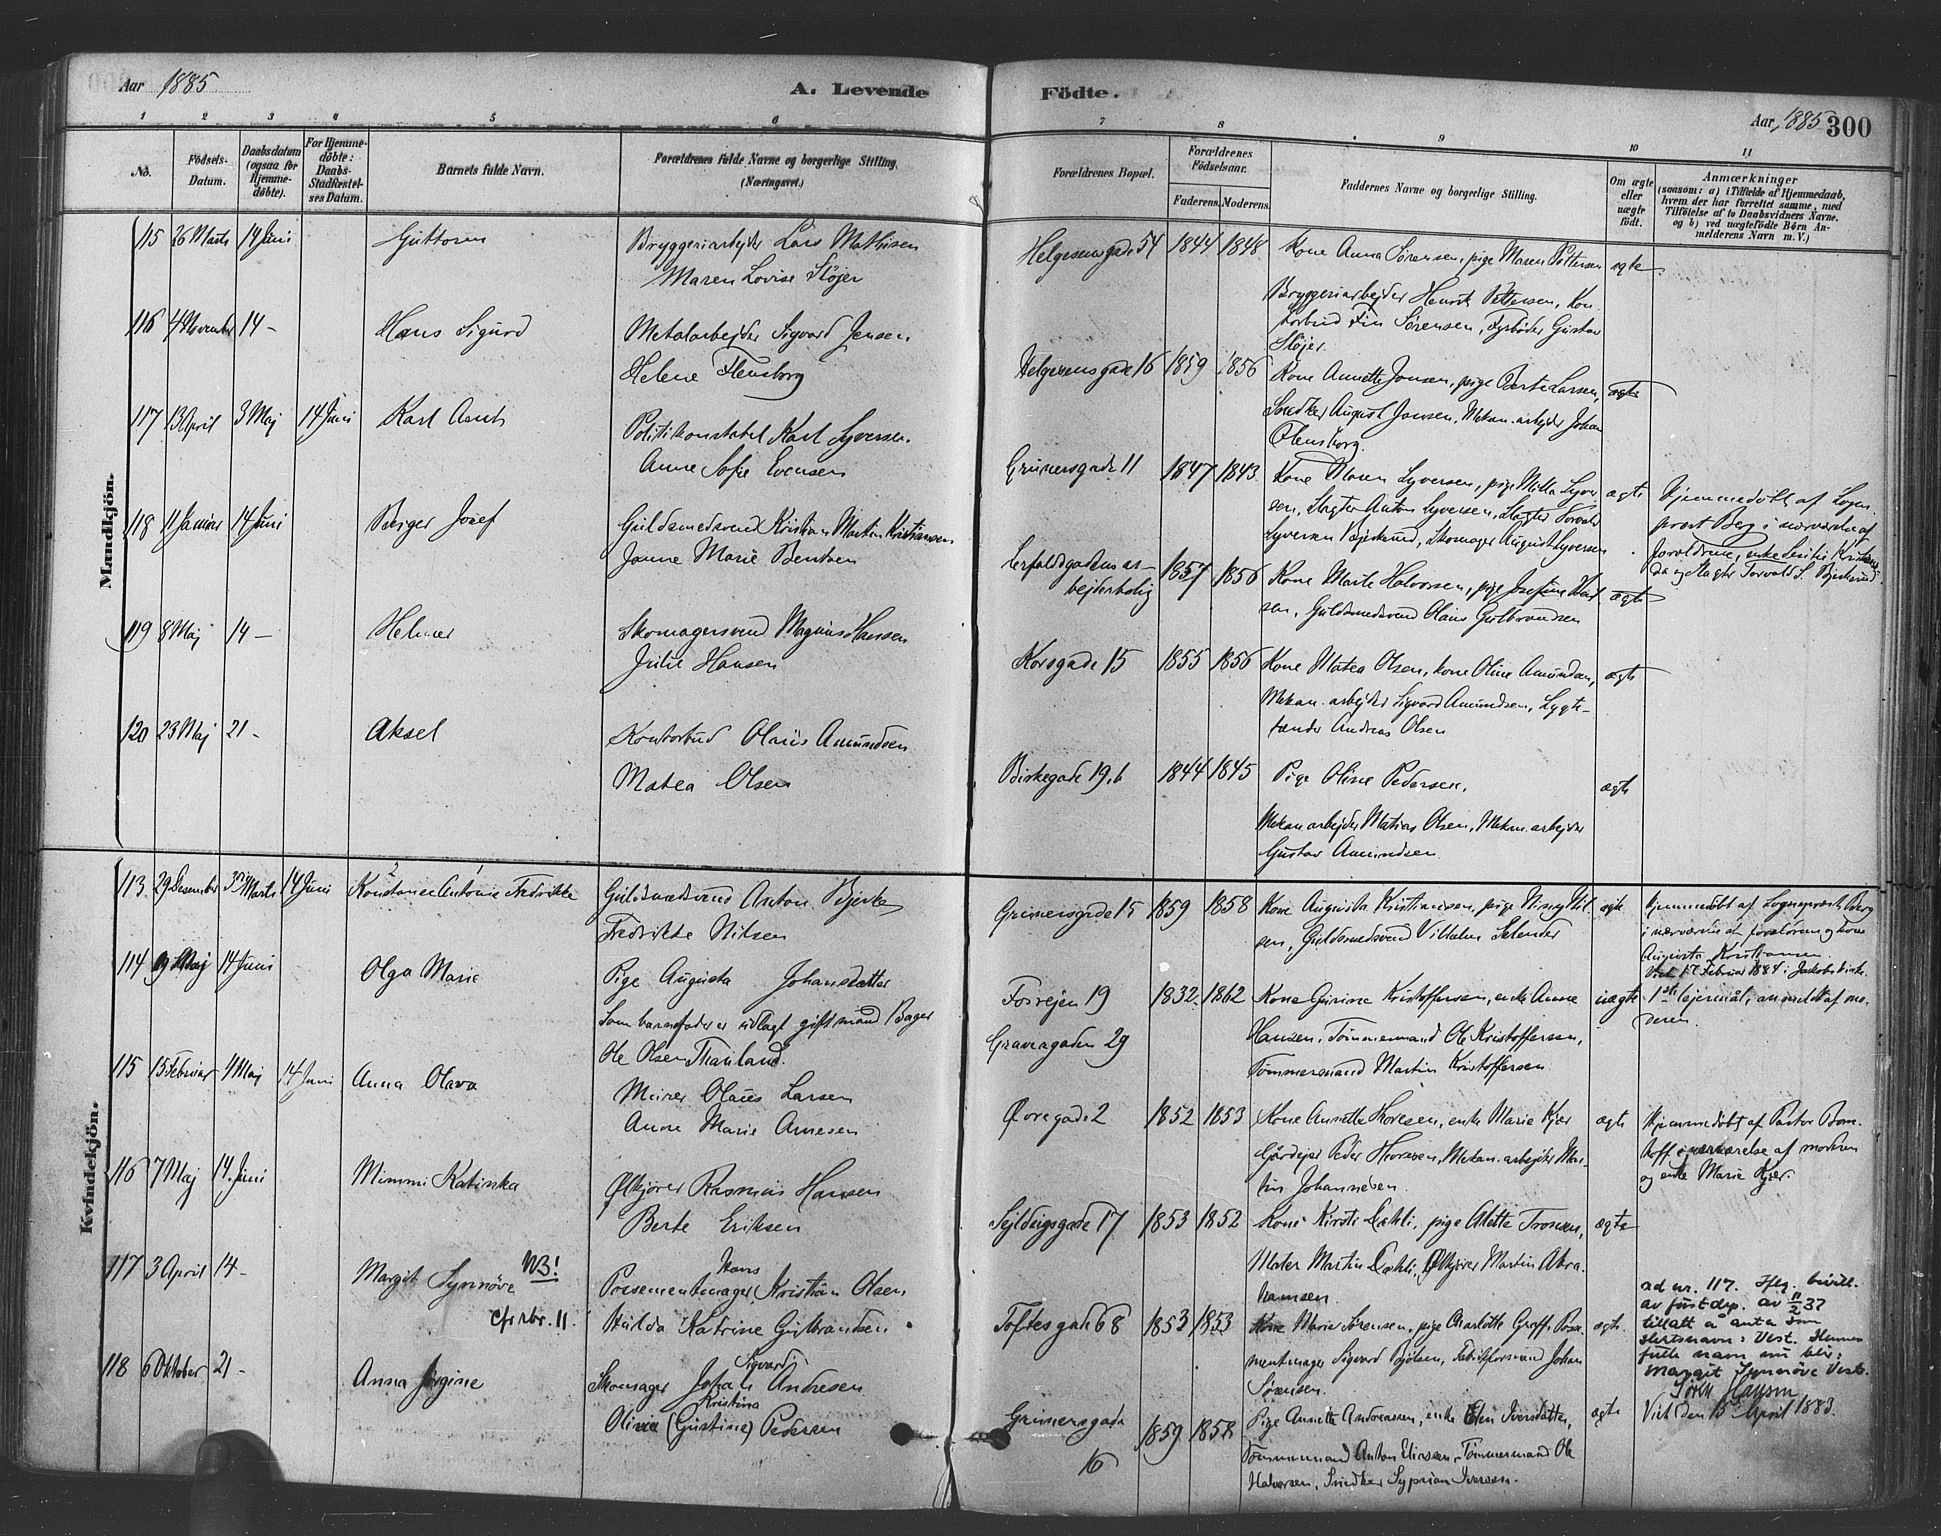 Aar 1885
A. Levende
Födte.
Aar 1885 300
1 2 3 4 5 6
7 8 9 10 11
No.
Födsels-
Datum.
Daabsdatum
(ogsaa for
Hjemme-
döbte).
For Hjemme-
döbte:
Daabs-
Stadfæstel-
ses Datum.
Barnets fulde Navn.
Forældrenes fulde Navne og borgerlige Stilling.
(Næringsvei.)
Forældrenes Bopæl.
Forældrenes
Födselsaar.
Faderens. Moderens.
Faddernes Navne og borgerlige Stilling.
Om ægte
eller
uægte
født.
Anmærkninger
(saasom: a) i Tilfælde af Hjemmedaab,
hvem der har forrettet samme, med
Tilföielse af to Daabsvidners Navne,
og b) ved uægtefödte Börn An-
melderens Navn m. V.)
Mandkjön.
115 26 Marts 14 Juni Guttorm Bryggeriarbejder Lars Mathisen
Maren Lovise Sløjer
Helgesensgade 54 1844 1848 Kone Anna Sørensen, pige Maren Pettersen ægte
Bryggeriarbejder Henrik Pettersen, Kon
torbud Fin Sørensen, Fyrbøder Gustav
Sløjer.
116 4 November 14 - Hans Sigurd Metalarbejder Sigvard Jensen
Helene Flensborg
Helgesensgade 16 1859 1856 Kone Annette Jonsen, pige Berte Larsen, ægte
Snedker August Jonsen, Mekan. arbejder Johan
Flensborg
117 13 April 3 Maj 14 Juni Karl Arnt Politikonstabel Karl Syversen
Anne Sofie Evensen
Grünersgade 11 1847 1843 Kone Maren Syversen, pige Milla Syver ægte
sen, Slagter Anton Syversen, Slagter Torvald
Syversen Bjerkund, Skomager August Syversen
Hjemmedøbt af Sogne
prest Berg i nærværelse af
118 11 Januar 14 Juni Birger Josef Guldsmedsvend Kristian Martin Kristiansen
Janne Marie Bentsen
arbejderbolig 1857 1856 Kone Marte Halvorsen, pige Josefine ægte
sen, Guldsmedsvend Olaus Gulbrandsen
119 8 Maj 14 - Helmer Skomagersvend Magnus Hansen
Julie Hansen
Korsgade 15 1855 1856 Kone Matea Olsen, kone Oline Amundsen, ægte
Mekan. arbejder Sigvard Amundsen, Lygte-
tænder Andreas Olsen
120 23 Maj 21 - Aksel Kontorbud Olaus Amundsen
Matea Olsen
Birkegade 19.b 1844 1845 Pige Oline Pedersen, ægte
Mekan. arbejder Matias Olsen, Mekan. arbejder
Gustav Amundsen
Kvindekjön.
113 29 Desember 3 Marts 14 Juni Konstance Antonie Fredrikke Guldsmedsvend Anton Bjerke
Fredrikke Nilsen
Grünersgade 15 1859 1858 Kone Augusta Kristiansen, pige Ninny Nil ægte
sen, Guldsmedsvend Vilhelm Selander
Hjemmedøbt af Sogneprest Berg
i nærværelse af forældrene og kone
Augusta Kristiansen.
Viet 17 Februar 1884 i Jakobs kirke.
114 9 Maj 14 Juni Olga Marie Pige Augusta Johansdatter
Som barnefader er udlagt gift mand Bager
Ole Olsen Thauland.
Fosvejen 19 1832 1862 Kone Gurine Kristoffersen, enke Anne uægte
Gravergaden 29 Hansen, Tømmermand Ole Kristoffersen,
Tømmermand Martin Kristoffersen
1ste lejermål, anmeldt af mo-
deren.
115 15 Februar 4 Maj 14 Juni Anna Olava Murer Olaus Larsen
Anne Marie Arnesen
Øvregade 2 1852 1853 Kone Annette Thoresen, enke Marie Kjær ægte
Gårdejer Peder Thoresen, Mekan. arbejder Mar-
tin Johannesen.
Hjemmedøbt af Pastor Bom-
hoff i nærværelse af moderen
og enke Marie Kjær.
116 7 Maj 14. Juni Mimmi Katinka Ølkjører Rasmus Hansen
Berte Eriksen
Sejldugsgade 17 1853 1852 Kone Kirsti Dæhli, pige Alette Trosven, ægte
Maler Martin Dæhli, Ølkjører Martin Abra
hamsen
117 3 April 14 - Margit Synnøve NB!
cfr rbr. 11.
Hans
Possementmager Kristian Olsen
Hulda Katrine Gulbrandsen
Toftesgade 68 1853 1853 Kone Marie Sørensen, pige Charlotte Groff, Posse ægte
mentmager Sigvard Bjølsen, Johan
Sørensen.
ad nr. 117. Iflg. bevill.
av justdep. av 11/2 37
tillatt å anta som
slektsnavn: Vest. Hennes
fulle navn nu blir:
Margit Synnøve Vest.
Sören Hansen
118 6 Oktober 21 - Anna Jørgine Sigvard
Skomager Johan Andresen
Kristina
Oline (Gustine) Pedersen
Grünersgade
16
1859 1858 Pige Annette Andreassen, enke Elen Iversdatter, ægte
Tømmermand Anton Eliesen, Tømmermand Ole
Halvorsen, Snedker Syprian Iversen.
Viet den 15 April 1883.